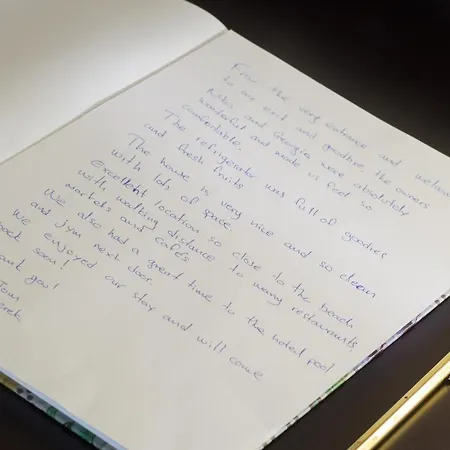 From the very entrance and welcome
to our exit and goodbye, the owners
and Georgia were absolutely
wonderful and made us feel so
comfortable.
The refrigerator was full of goodies
and fresh fruits
The house is very nice and so clean
with lots of space.
Excellent location so close to the beach
with walking distance to many restaurants,
markets and cafés
We also had a great time to the hotel pool
and gym next door
We enjoyed our stay and will come
back soon!
you!
Tom